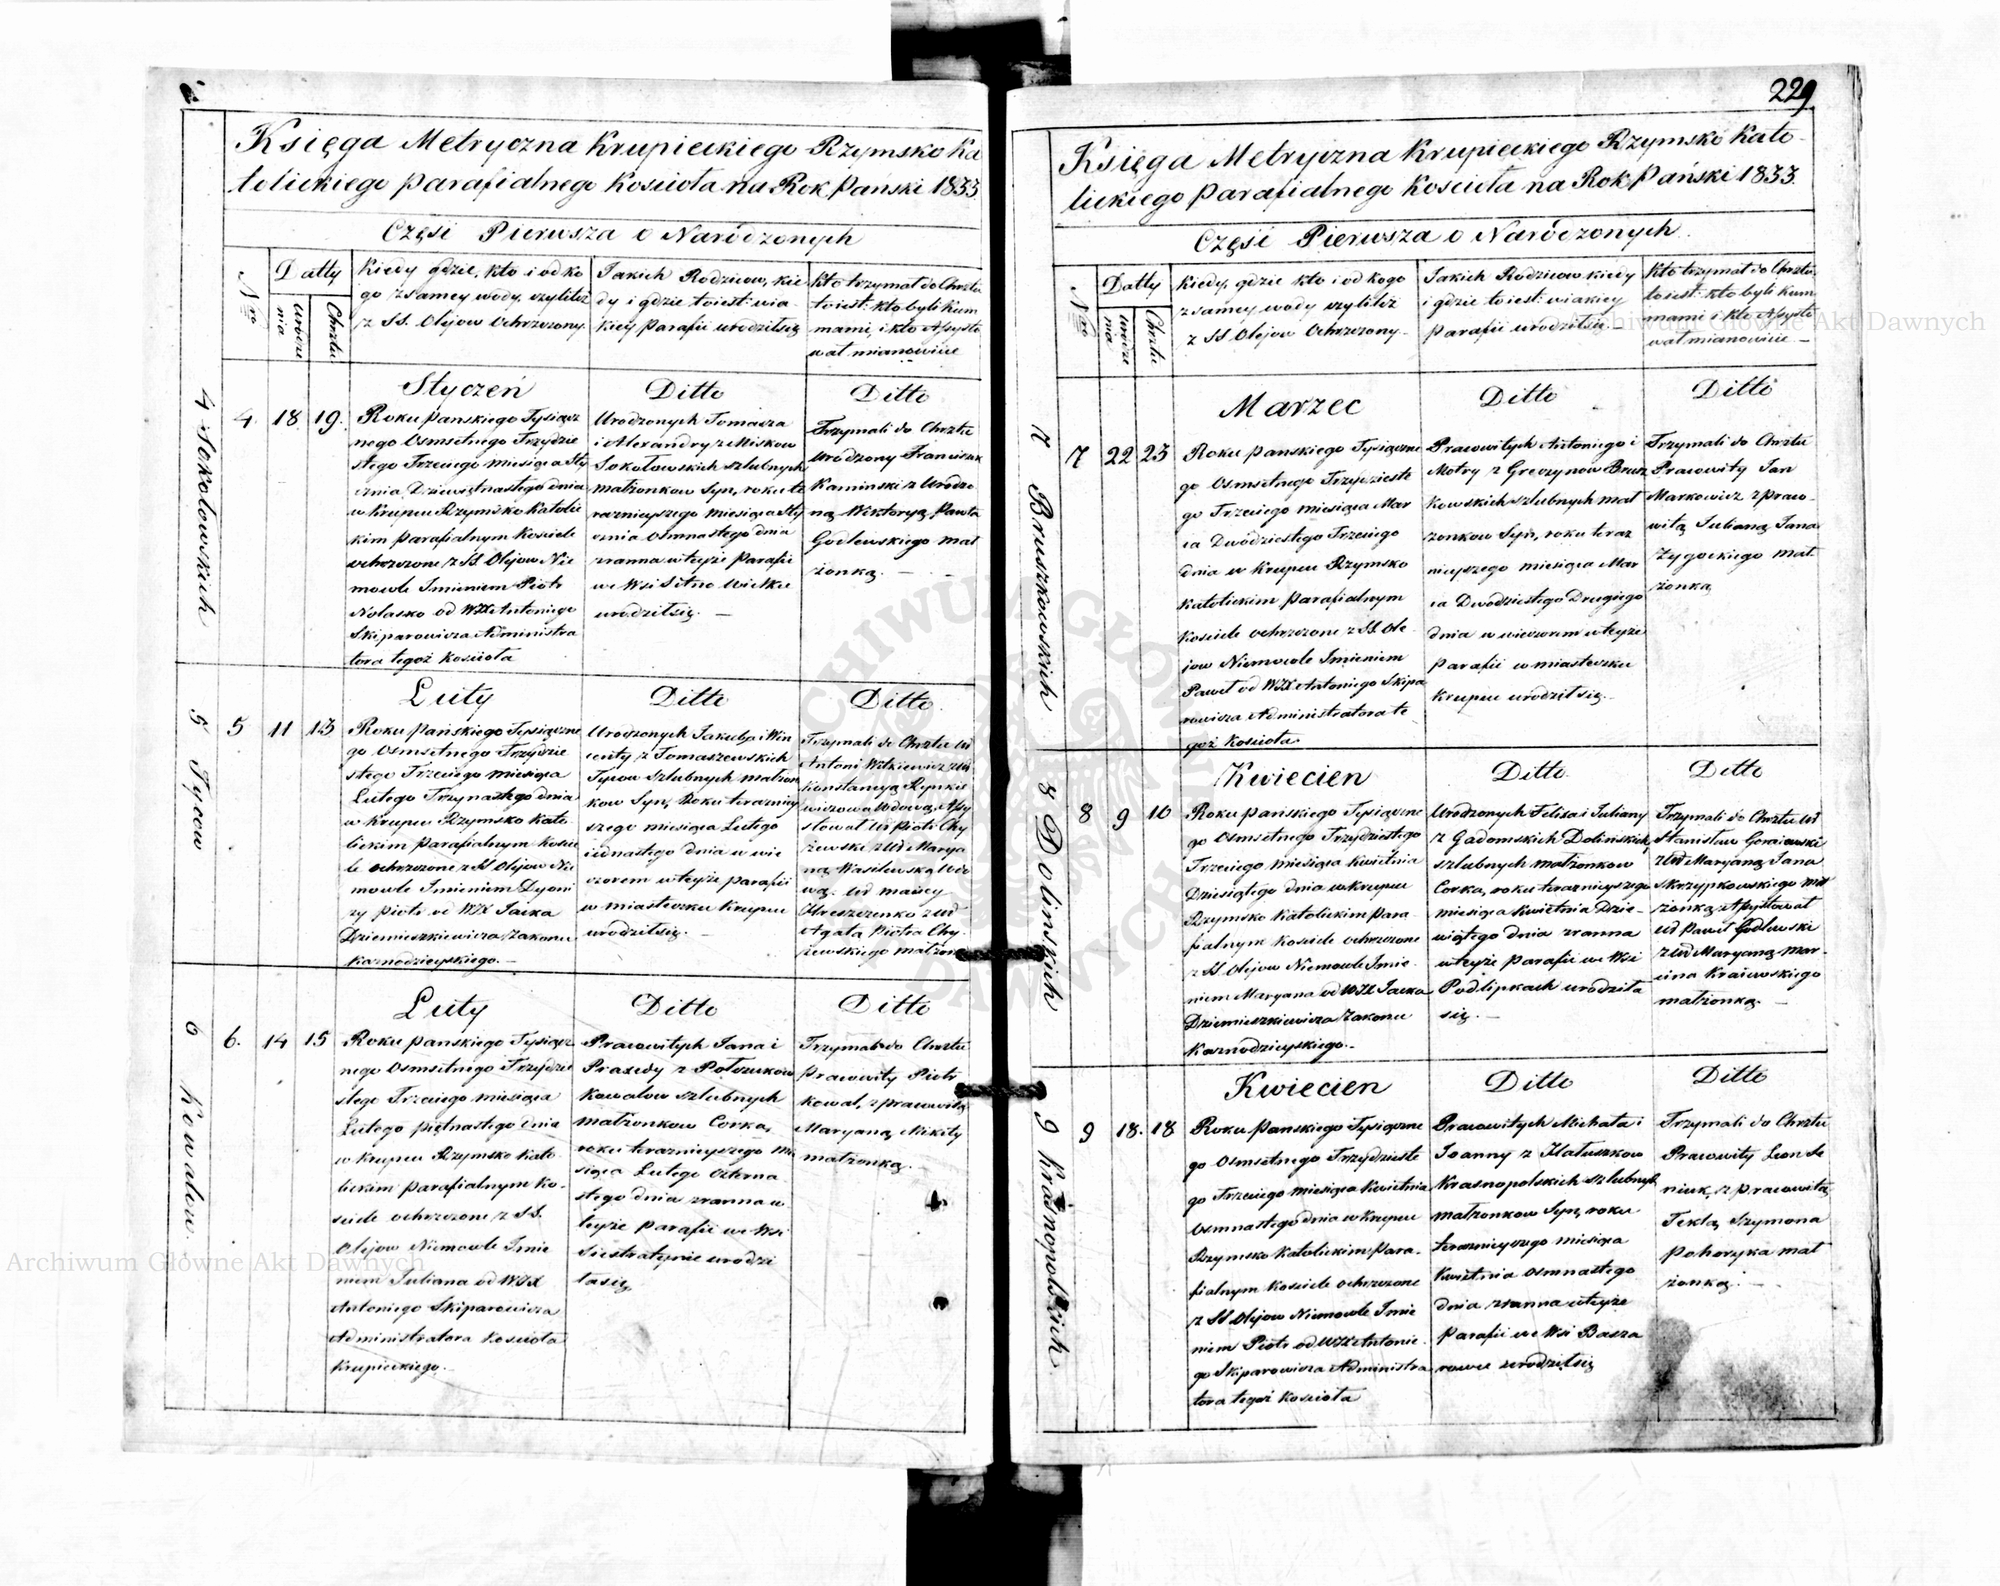 229
Księga Metryczna Krupieckiego Rzymsko Ka
tolickiego parafialnego Kościoła na Rok Pański 1833
Część Pierwsza o Narodzonych
Nro
Datty
urodze
nia
Chrztu
Kiedy gdzie, kto i od ko
go z samey wody, czyliteż
z SS. Olejow Ochrzczony
Jakich Rodzicow, kie
dy i gdzie to iest: w ia
kiey Parafii urodziłsię
Kto trzymał do Chrztu
to iest: kto byli Kum
mami, i kto Assysto
wał mianowicie
4 Sokołowskich
4. 18. 19.
Styczeń
Roku Panskiego Tysiącz
nego Osmsetnego Trzydzie
stego Trzeciego miesiąca Sty
cznia Dziewętnastego dnia
w Krupcu Rzymsko Katolic
kim parafialnym Kosciele
ochrzczone z SS. Olejow Nie
mowle Imieniem Piotr
Nolasko od WJX Antoniego
Skiparowicza Administra
tora tegoż Kościoła
Ditto
Urodzonych Tomasza
i Alexandry z Miskow
Sokołowskich szlubnych
matżonkow Syn, roku te
raznieyszego miesiąca Sty
cznia Osmnastego dnia
zranna w teyże Parafii
we Wsi Sitno Wielkie
urodziłsię. —
Ditto
Trzymali do Chrztu
Urodzony Franciszek
Kaminski z Urodzo
ną Wiktoryą Pawła
Godlewskiego mał
żonką. —
5 Tycow
5 11 13
Luty
Roku Pańskiego Tysiączne
go Osmsetnego Trzydzie
stego Trzeciego miesiąca
Lutego Trzynastego dnia
w Krupcu Rzymsko Kato
lickim Parafialnym Koscie
le ochrzczone z SS Olejow Nie
mowle Imieniem Dyoni
zy Piotr od WJX Jacka
Dziemieszkiewicza Zakonu
Kaznodzieyskiego. —
Ditto
Urodzonych Jakuba i Win
centy z Tomaszewskich
Tycow szlubnych matżon
kow Syn, Roku terazniey
szego miesiąca Lutego
iednastego dnia w wie
czorem w teyże parafii
w miasteczku Krupcu
urodziłsię. —
Ditto
Trzymali do Chrztu Ur
Antoni Witkiewicz z Ur
Konstancyą Rynkie
wiczowa Wdową, Assy
stował Ur Piotr Chy
żewski z Ur Marya
ną Wasilewską Wdo
wą. Ur Maciey
Hreszczenko z Ur
Agatą Piotra Chy
żewskiego matżon
6 Kowalow
6. 14 15
Luty
Roku Panskiego Tysiącz
nego Osmsetnego Trzydzie
stego Trzeciego miesiąca
Lutego piętnastego dnia
w Krupcu Rzymsko Kato
lickim Parafialnym Ko-
sciele ochrzczone z SS.
Olejow Niemowle Imie
niem Juliana od WJX
Antoniego Skiparowicza
Administratora Kościoła
Krupieckiego. —
Ditto
Pracowitych Jana i
Praxedy z Potczukow
Kowalow szlubnych
matżonkow Corka,
roku teraznieyszego Mie
siąca Lutego Czterna
stego dnia zranna w
teyże Parafii we Wsi
Siestratynie urodzi
łasię
Ditto
Trzymali do Chrztu
Pracowity Piotr
Kowal, z pracowitą
Maryaną Nikity
matżonką. —
Księga Metryczna Krupieckiego Rzymsko Kato-
lickiego Parafialnego Kościoła na Rok Pański 1833.
Część Pierwsza o Narodzonych
Nro
Datty
urodze
nia
Chrztu
Kiedy, gdzie kto i od kogo
z samey wody czyliteż
z SS Olejow Ochrzczony-
Jakich Rodzicow kiedy
i gdzie to iest: w iakiey
Parafii urodziłsię
Kto trzymał do Chrztu
to iest: kto byli Kum
mami i kto Assysto
wał mianowicie —
7 Bruszkowskich
7 22 23
Marzec
Roku Panskiego Tysiączne
go Osmsetnego Trzydzieste
go Trzeciego miesiąca Mar
ca Dwódziestego Trzeciego
dnia w Krupcu Rzymsko
Katolickim Parafialnym
Kosciele ochrzczone z SS. Ole
jow Niemowle Imieniem
Paweł od WJX Antoniego Skipa
rowicza Administratora te
goż Kościoła
Ditto
Pracowitych Antoniego i
Motry z Greczynow Brusz
kowskich szlubnych mał
żonkow Syn, roku teraz
nieyszego miesiąca Mar
ca Dwodziestego Drugiego
dnia w wieczorem w teyże
Parafii w miasteczku
Krupcu urodziłsię. —
Ditto
Trzymali do Chrztu
Pracowity Jan
Markowicz z praco-
witą Julianą Jana
Zygockiego mał
żonką
8 Dolinskich
8 9 10
Kwiecien
Roku Pańskiego Tysiączne
go Osmsetnego Trzydziestego
Trzeciego Miesiąca Kwietnia
Dziesiątego dnia w Krupcu
Rzymsko Katolickim Para-
fialnym Kosciele ochrzczone
z SS. Olejow Niemowle Imie
niem Maryana od WJX Jacka
Dziemieszkiewicza Zakonu
Kaznodzieyskiego. —
Ditto
Urodzonych Felixa i Juliany
z Gadomskich Dolinskich
szlubnych matżonkow
Corka, roku teraznieyszego
miesiąca Kwietnia Dzie-
wiątego dnia zranna
w teyże Parafii we Wsi
Podlipkach urodziła
się. —
Ditto
Trzymali do Chrztu Ur
Stanisław Goraiewski
z Ur Maryaną Jana
Skrzypkowskiego mał
żonką Assystował
Ur Paweł Godlewski
z Ur Maryaną Mar-
cina Kraiewskiego
matżonką. —
9 Krasnopolskich
9 18. 18
Kwiecien
Roku Panskiego Tysiączne
go Osmsetnego Trzydzieste
go Trzeciego miesiąca Kwietnia
Osmnastego dnia w Krupcu
Rzymsko Katolickim Para-
fialnym Kosciele ochrzczone
z SS Olejow Niemowle Imie
niem Piotr od WJX Antonie-
go Skiparowicza Administra
tora tegoż Kościoła
Ditto
Pracowitych Michała i
Joanny z Hałuszkow
Krasnopolskich szlubnych
matżonkow Syn, roku
teraznieyszego miesiąca
Kwietnia osmnastego
dnia zranna w teyże
Parafii we Wsi Basza
rowce urodziłsię
Ditto
Trzymali do Chrztu
Pracowity Leon Se
niuk, z pracowitą
Teklą Szymona
Pohorzyka mał
żonką. —
Archiwum Główne Akt Dawnych
Archiwum Główne Akt Dawnych